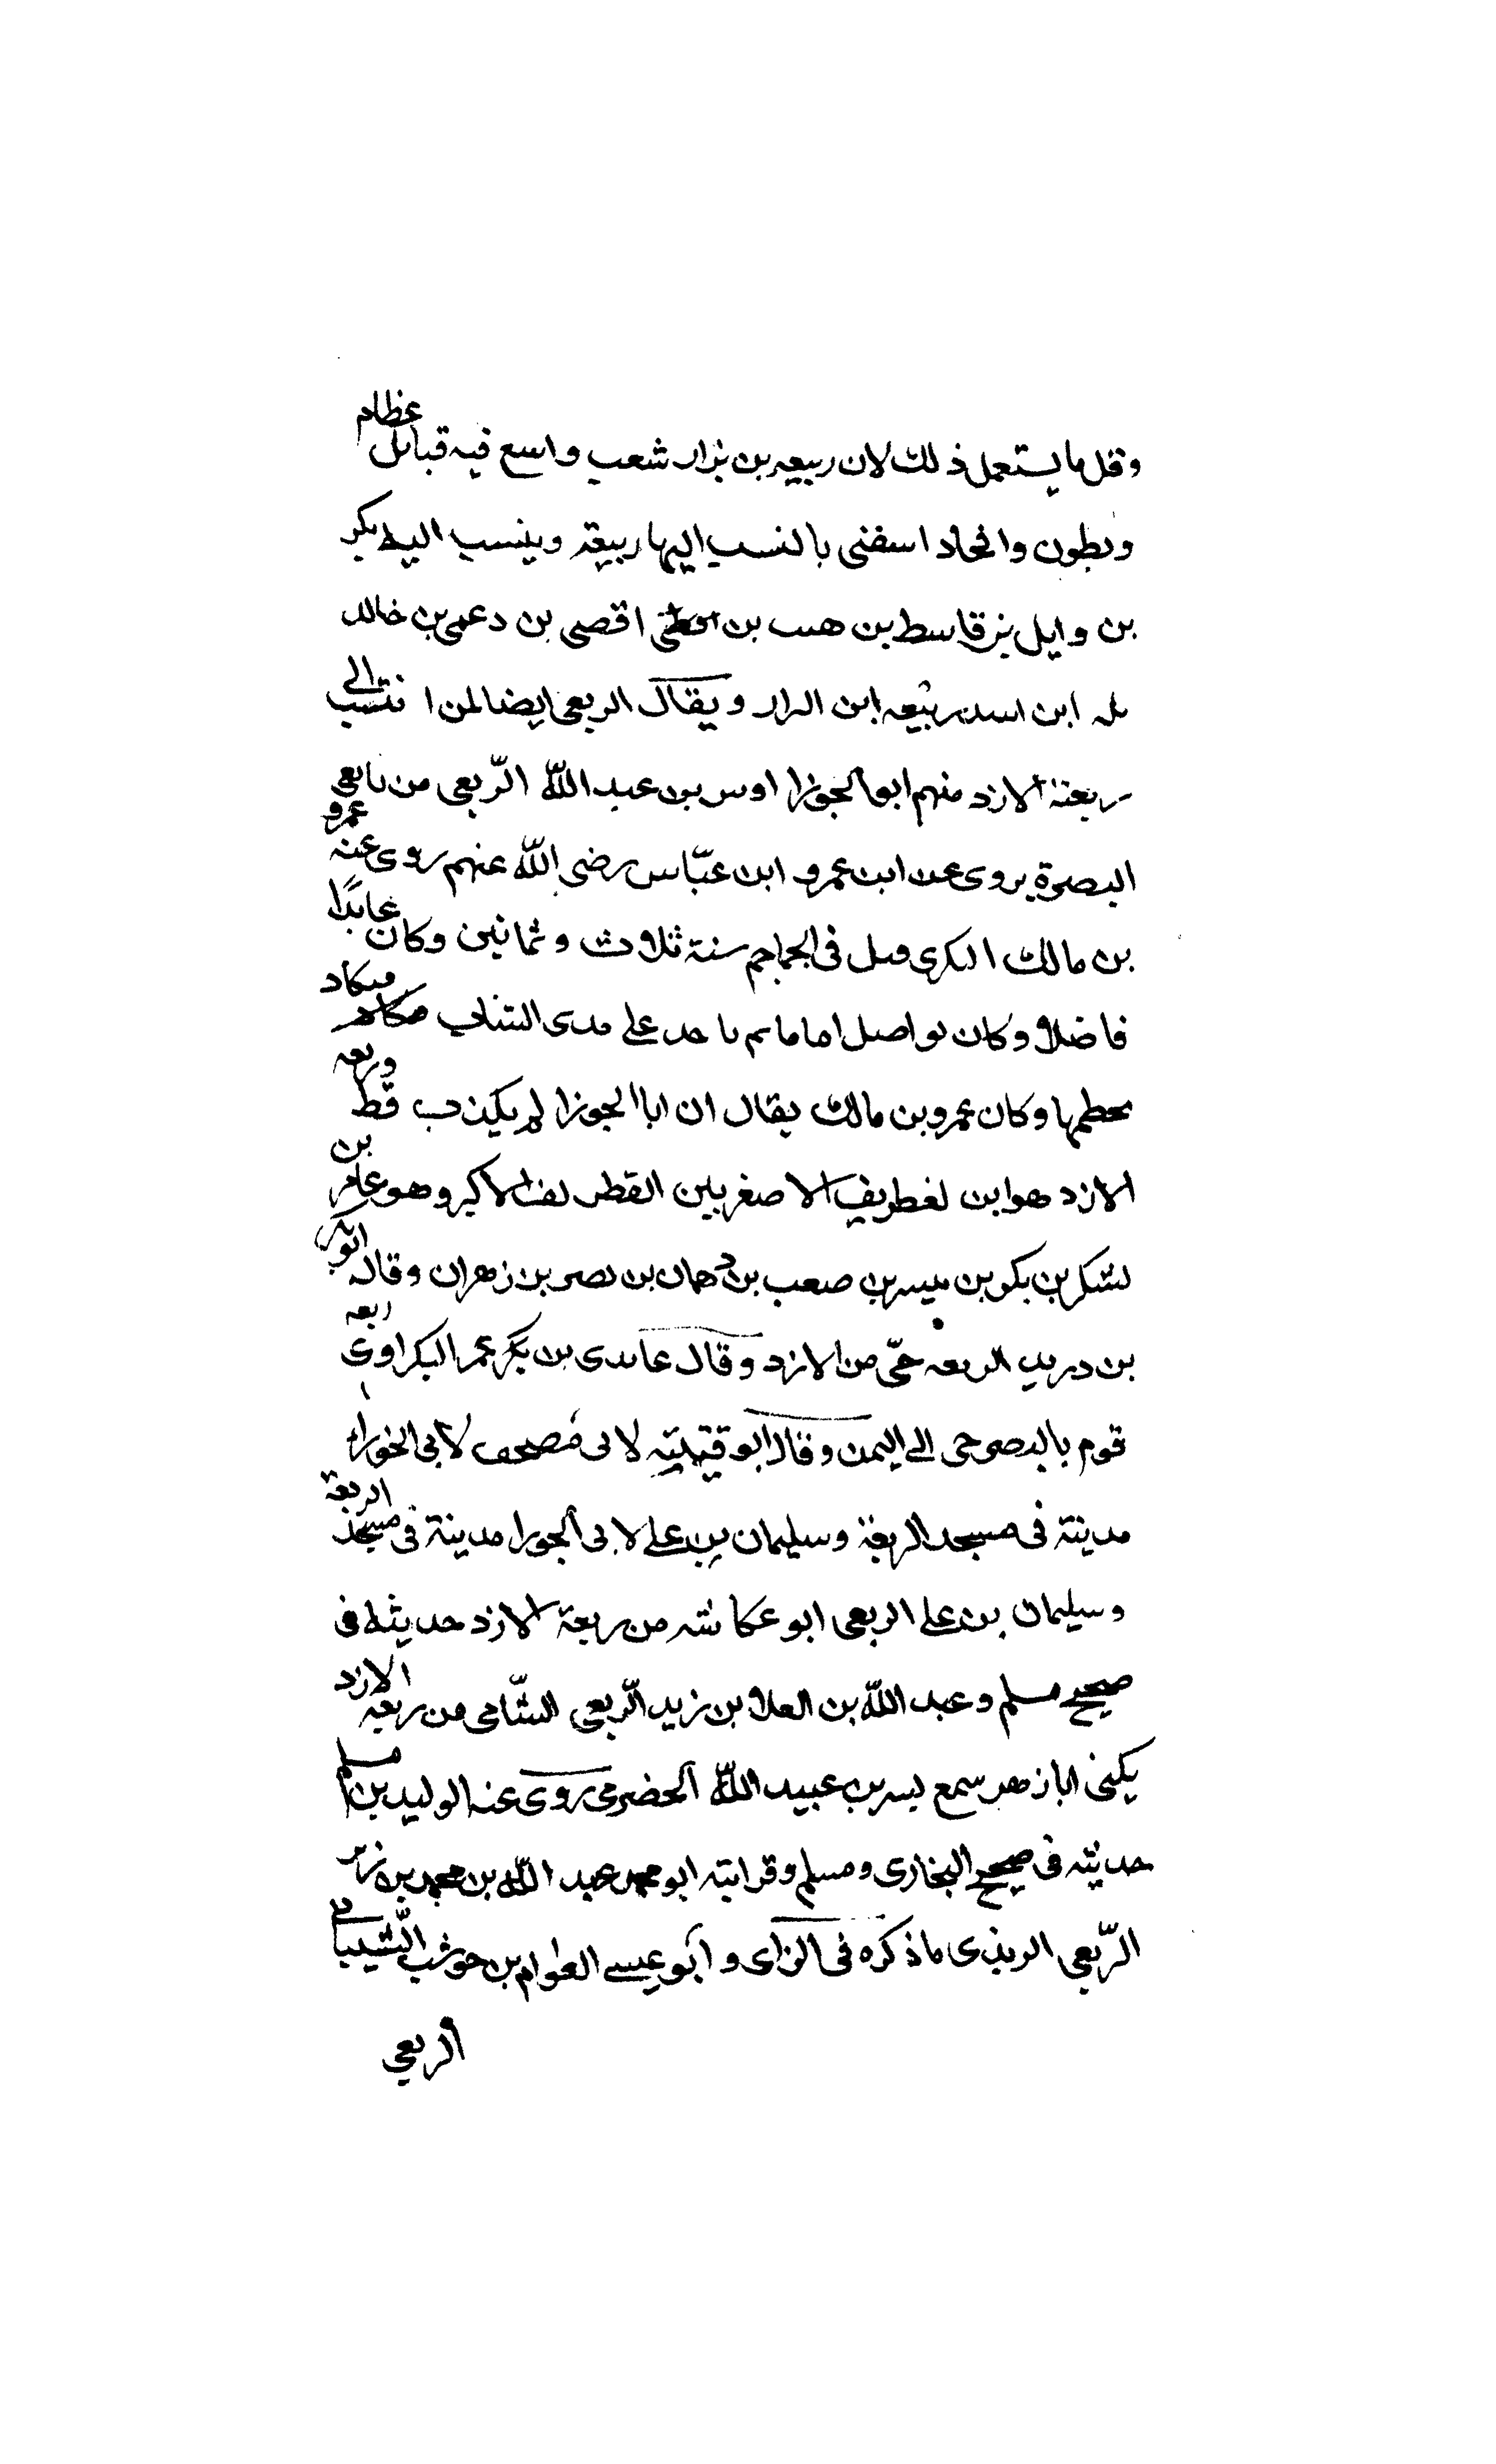 وقل ما يستعمل ذلك لان ربيعه بن نزار شعب واسع فيه قبائل عظام
وبطون وافخاد اسفنى بالنسب اليها ربيعة وينسب اليه بكر
بن وايل بن قاسط بن هنب بن اقصى بن دعمى بن خالد
بله ابن اسد ربيعه ابن الرار ويقال الربعى ايضا لمن انتسب الى
ربعة الازد منهم ابو الجوزا اوس بن عبد الله الرّبعى من تابعى
البصرة يروى عن ابن عمرو ابن عبّاس رضى الله عنهم روى عنه عمرو
بن مالك البكرى قتل فى الجماجم سنة ثلاث وثمانين وكان عابدًا
فاضلا وكان يواصل اياما ثم ياخد على يدى الشاب فيكاد
يحطمها وكان عمرو بن مالك يقال ان ابا الجوزا لم يكذب قط وربعه
الازد هو ابن لغطريف الاصغر بين القطريف الاكبر وهو عامر بن
يشكر بن بكر بن ميسر بن صعب بن دهمان بن نصر بن زهران وقال ابوبكر
بن دريد الربعه حىّ من الازد وقال عاسدى بن بكر عمر البكراوى ربعه
قوم بالبصر حى الى اليمن وقال ابو قتيبته لابى مصحف لابى الخوراء
مدينة فى مسجد الربعة وسليمان بن على لابى الجورا مدينة فى مسجد الربعة
وسليمان بن على الربعى ابو عكاشه من ربعة الازد حديثه فى
صحيح مسلم وعبد الله بن العلا بن زيد الرّبعى الشّامى من ربعه الازد
يكنى ابا زهر سمع بسر بن عبيد الله الحضرمى روى عنه الوليد بن مسلم
حديثه فى صحيح البخارى ومسلم وقرابته ابو محمد عبد الله بن محمد بن زبر
الرّبعى الريذى ما ذكره فى الزاى وابو عيسى العوام بن حوشب الشّيبانى
الربعى